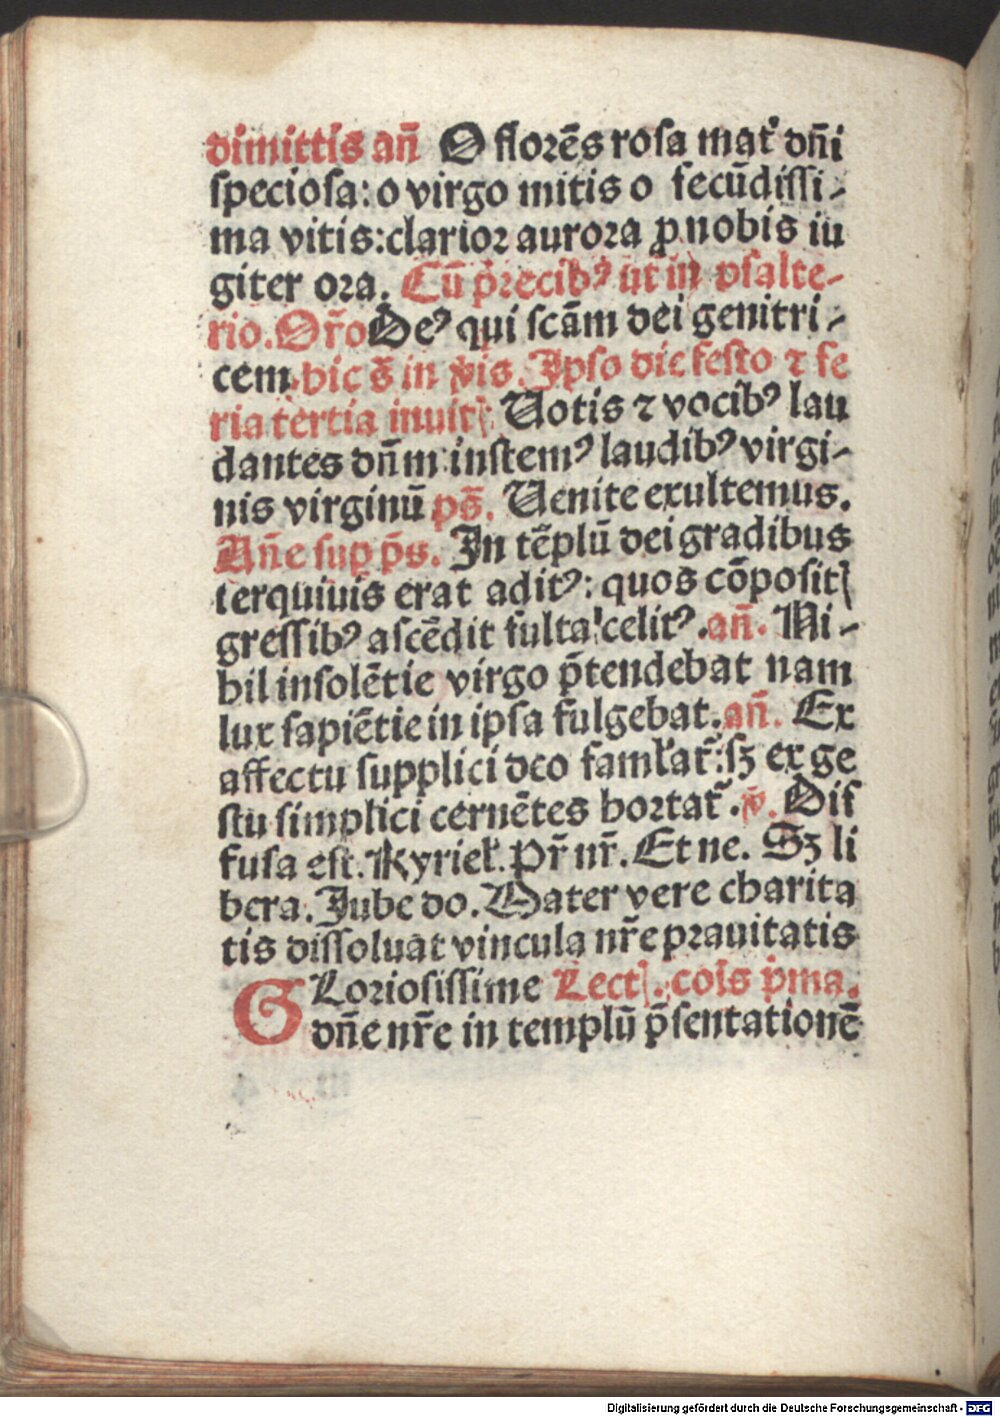 dimittis añ O florēs rosa mat̉ dñi
speciosa: o virgo mitis o fecūdissi-
ma vitis: clarior aurora ꝓ nobis iu
giter ora. Cū p̃recibꝰ ut in psalte-
rio. Or̃o Deꝰ qui scām dei genitri-
cem. hic s̃ in p̃is. Ipso die festo ⁊ fe
ria tertia inuit̉ Uotis ⁊ vocibꝰ lau
dantes dñm: instemꝰ laudibꝰ virgi-
nis virginū ps̃. Uenite exultemus.
Añe sup p̃s. In tēplū dei gradibus
terquiuis erat aditꝰ: quos cōposit
gressibꝰ ascēdit fulta celitꝰ. añ. Ni-
hil insolētie virgo p̃tendebat nam
lux sapiētie in ipsa fulgebat. añ. Ex
affectu supplici deo faml̉at̃: sꝫ ex ge
stu simplici cernētes hortat̃. v̉. Dif
fusa est. Kyriel̉. Pr̃ nr̃. Et ne. Sꝫ li
bera. Jube do. Mater vere charita
tis dissoluat vincula nr̃e prauitatis
GLoriosissime Lect. cōis p̉ma.
dñe nr̃e in templū p̃sentationē
Digitalisierung gefördert durch die Deutsche Forschungsgemeinschaft - DFG